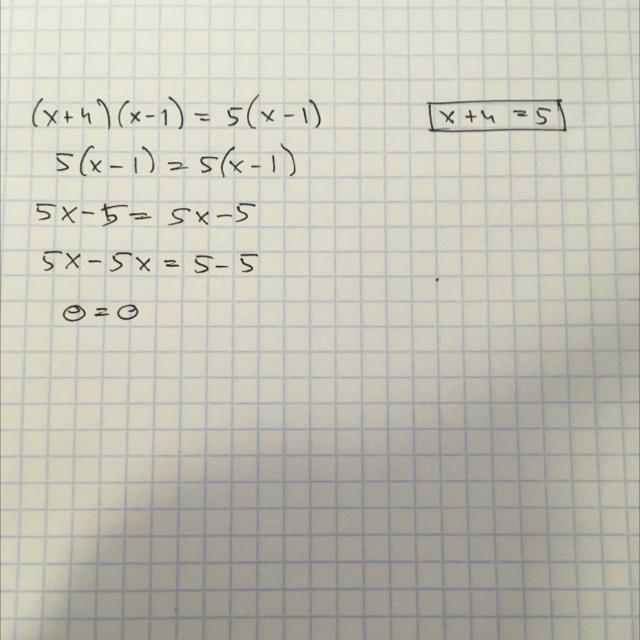 (x+4)(x-1) = 5(x-1)
x+4 = 5
5(x-1) = 5(x-1)
5x-5 = 5x-5
5x-5x = 5-5
0 = 0